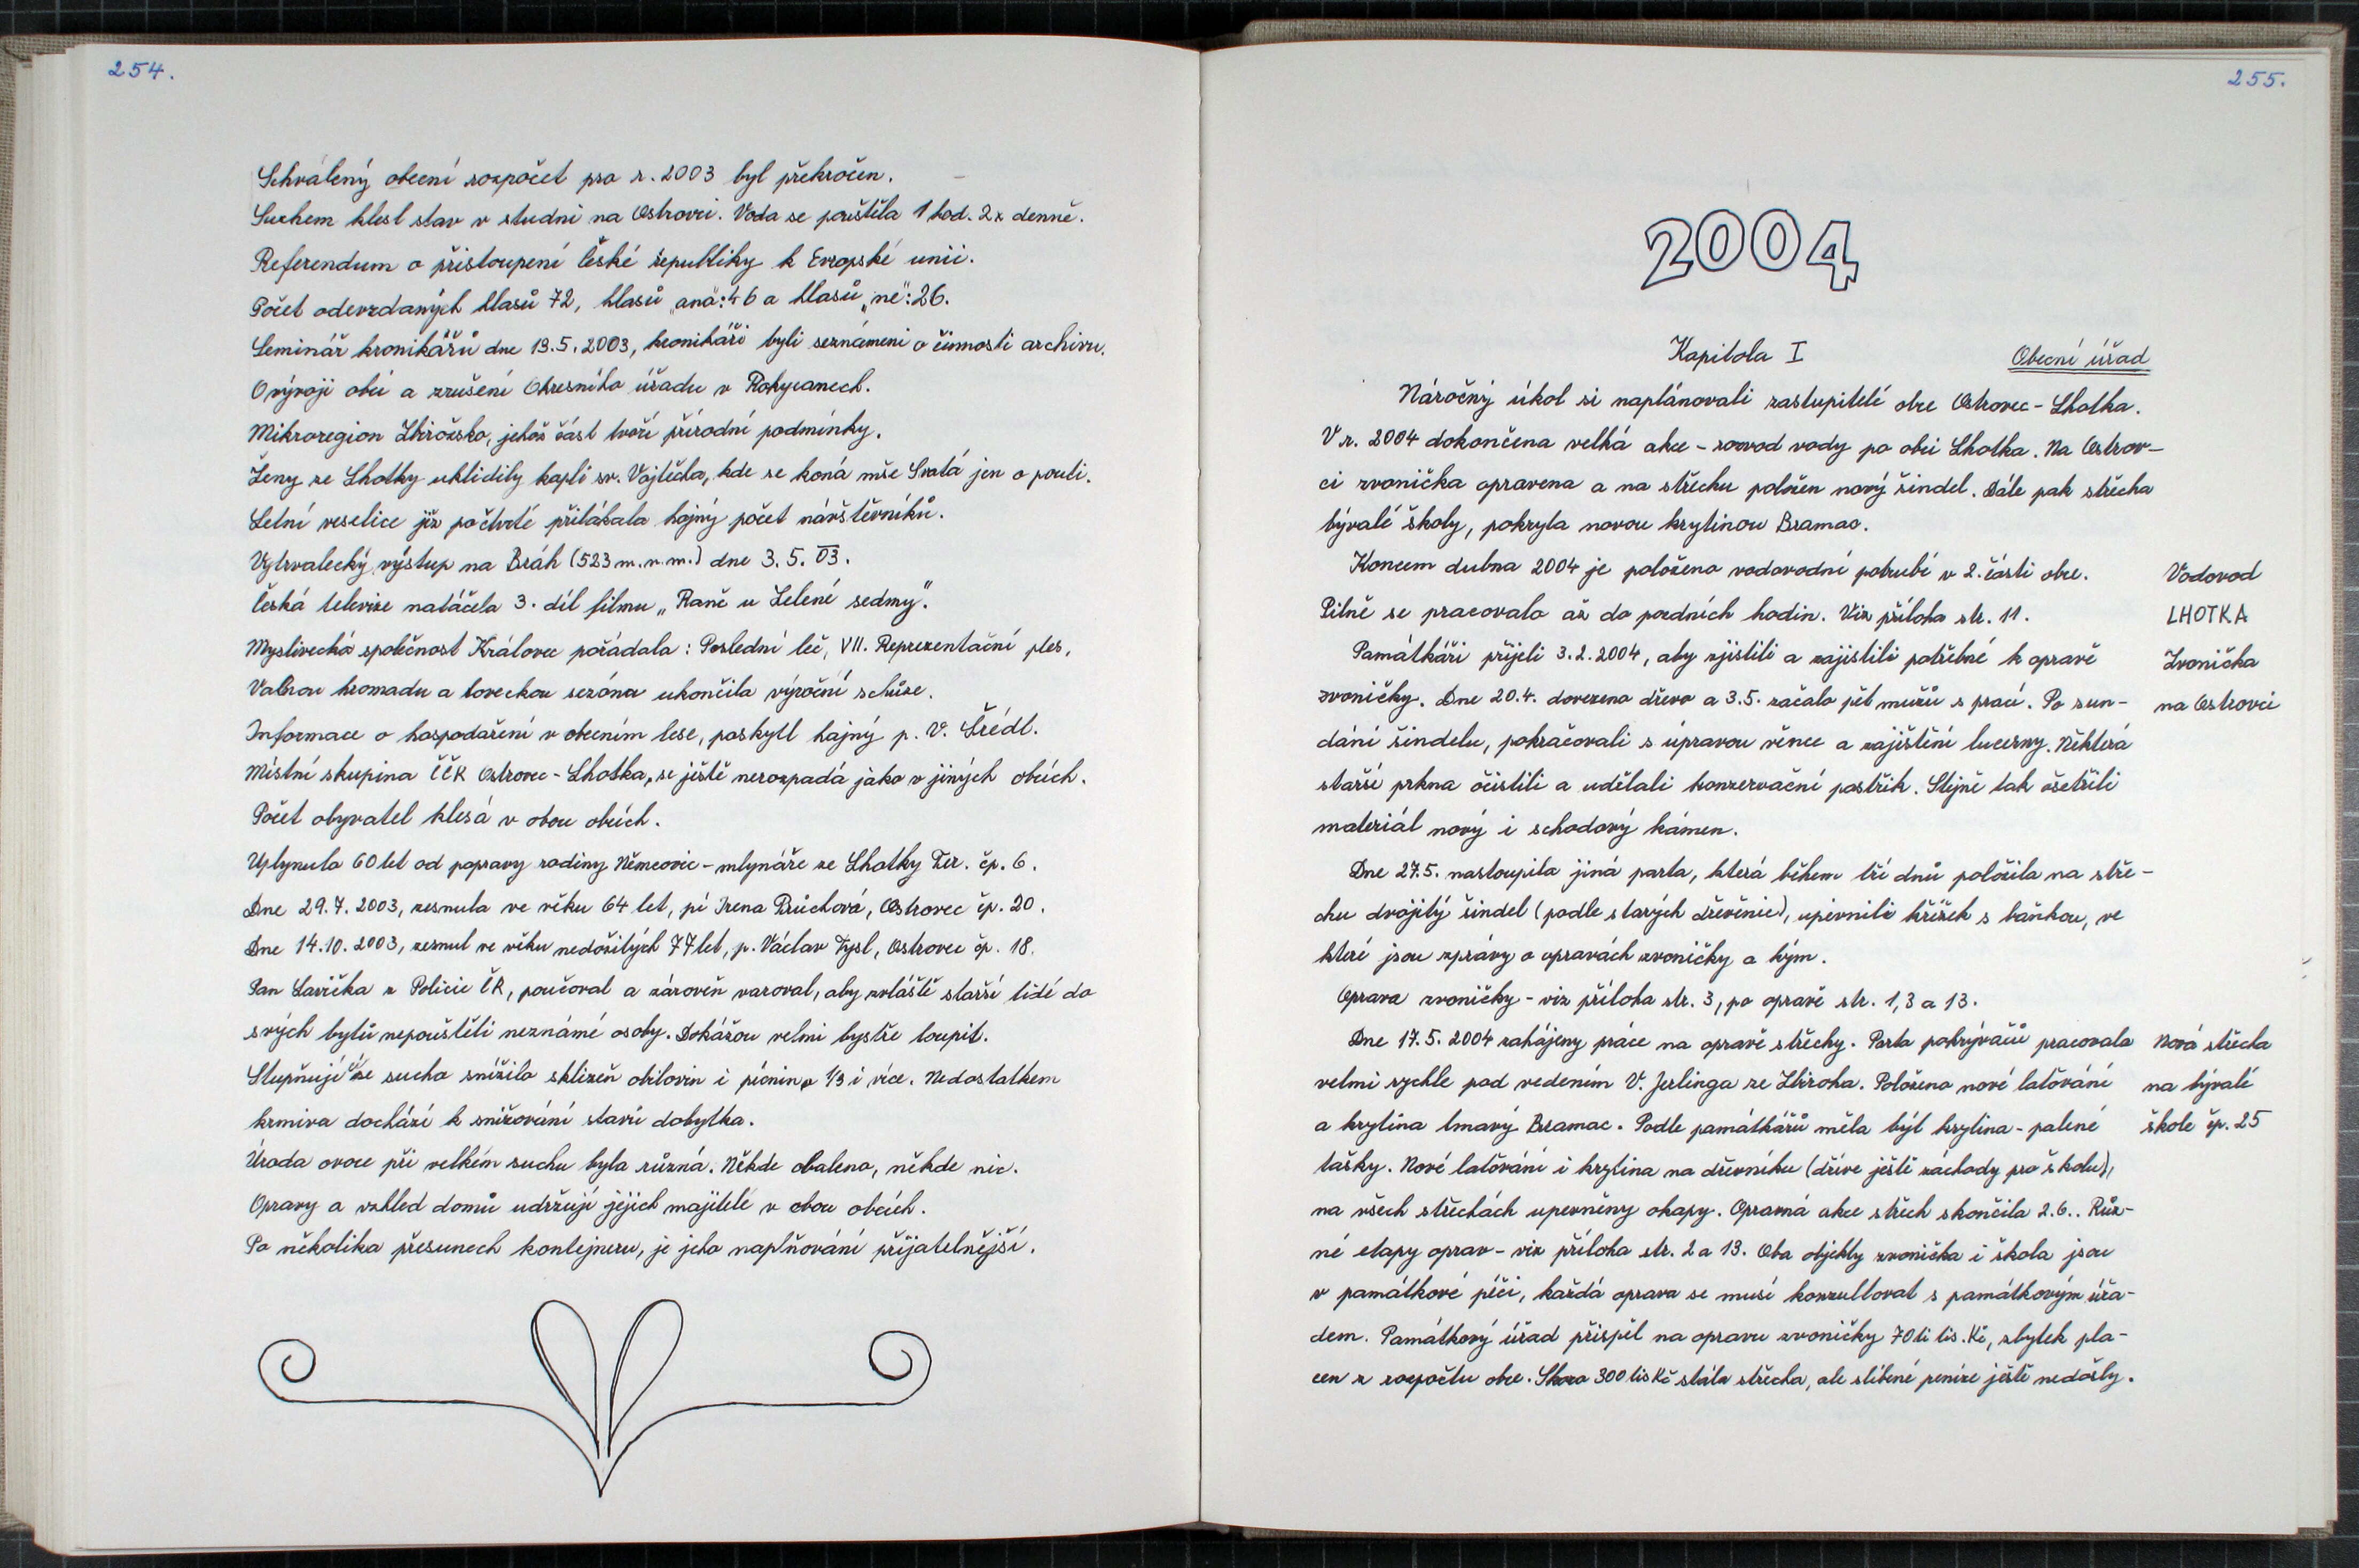 254.
Schválený obecní rozpočet pro r. 2003 byl překročen.
Suchem klesl stav v studni na Ostrovci. Voda se pouštěla 1 hod. 2x denně.
Referendum o přistoupení České republiky k Evropské unii.
Počet odevzdaných hlasů 72, hlasů „ano": 46 a hlasů „ne": 26.
Seminář kronikářů dne 13.5.2003, kronikáři byli seznámeni o činnosti archivu.
O vývoji obcí a zrušení Okresního úřadu v Rokycanech.
Mikroregion Zbirožsko, jehož část tvoří přírodní podmínky.
Ženy ze Lhotky uklidily kapli sv. Vojtěcha, kde se koná mše Svatá jen o pouti.
Letní veselice již počtvrté přilákala hojný počet návštěvníků.
Vytrvalecký výstup na Bráh (523 m.n.m.) dne 3.5.03.
Česká televize natáčela 3. díl filmu „Ranč u Zelené sedmy".
Myslivecká společnost Královec pořádala: Poslední leč, VII. Reprezentační ples,
Valnou hromadu a loveckou sezónu ukončila výroční schůze.
Informace o hospodaření v obecním lese, poskytl hajný p. V. Šrédl.
Místní skupina ČČK Ostrovec-Lhotka, se ještě nerozpadá jako v jiných obcích.
Počet obyvatel klesá v obou obcích.
Uplynulo 60 let od popravy rodiny Němcovic - mlynáře ze Lhotky Ter. čp. 6.
Dne 29.7.2003, zesnula ve věku 64 let, pí Irena Průchová, Ostrovec čp. 20.
Dne 14.10.2003, zesnul ve věku nedožitých 77 let, p. Václav Fysl, Ostrovec čp. 18.
Pan Lavička z Policie ČR, poučoval a zároveň varoval, aby zvláště starší lidé do
svých bytů nepouštěli neznámé osoby. Dokážou velmi bystře loupit.
Stupňující se sucho snížilo sklizeň obilovin i pícnin o 1/3 i více. Nedostatkem
krmiva dochází k snižování stavů dobytka.
Úroda ovoce při velkém suchu byla různá. Někde obaleno, někde nic.
Opravy a vzhled domů udržují jejich majitelé v obou obcích.
Po několika přesunech kontejneru, je jeho naplňování přijatelnější.
255.
2004
Kapitola I Obecní úřad
Náročný úkol si naplánovali zastupitelé obce Ostrovec-Lhotka.
V r. 2004 dokončena velká akce - rozvod vody po obci Lhotka. Na Ostrov-
ci zvonička opravena a na střechu položen nový šindel. Dále pak střecha
bývalé školy, pokryta novou krytinou Bramac.
Koncem dubna 2004 je položeno vodovodní potrubí v 2. části obce. Vodovod
Pilně se pracovalo až do pozdních hodin. Viz příloha str. 11. LHOTKA
Památkáři přijeli 3.2.2004, aby zjistili a zajistili potřebné k opravě Zvonička
zvoničky. Dne 20.4. dovezeno dřevo a 3.5. začalo pět mužů s prací. Po sun- na Ostrovci
dání šindelu, pokračovali s úpravou věnce a zajištění lucerny. Některá
starší prkna očistili a udělali konzervační postřik. Stejně tak ošetřili
materiál nový i schodový kámen.
Dne 27.5. nastoupila jiná parta, která během tří dnů položila na stře-
chu dvojitý šindel (podle starých dřevěnic), upevnili křížek s báňkou, ve
které jsou zprávy o opravách zvoničky a kým.
Oprava zvoničky - viz příloha str. 3, po opravě str. 1, 3 a 13.
Dne 17.5.2004 zahájeny práce na opravě střechy. Parta pokrývačů pracovala Nová střecha
velmi rychle pod vedením V. Jerlinga ze Zbiroha. Položeno nové laťování na bývalé
a krytina tmavý Bramac. Podle památkářů měla být krytina - pálené škole čp. 25
tašky. Nové laťování i krytina na dřevníku (dříve ještě záchody pro školu),
na všech střechách upevněny okapy. Opravná akce střech skončila 2.6.. Růz-
né etapy oprav - viz příloha str. 2 a 13. Oba objekty zvonička i škola jsou
v památkové péči, každá oprava se musí konzultovat s památkovým úřa-
dem. Památkový úřad přispěl na opravu zvoničky 70ti tis. Kč, zbytek pla-
cen z rozpočtu obce. Skoro 300 tis Kč stála střecha, ale slíbené peníze ještě nedošly.